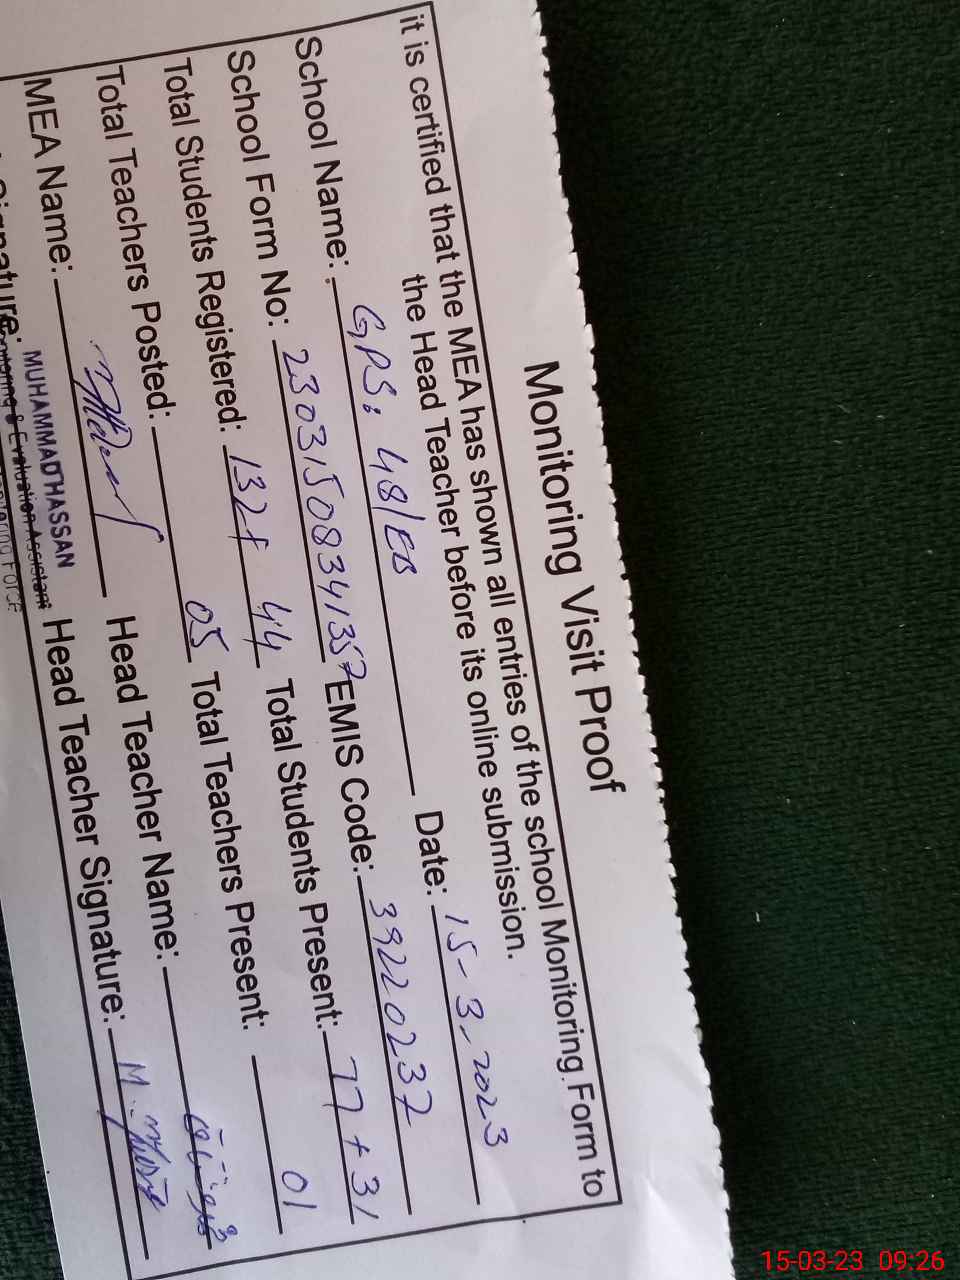 Monitoring Visit Proof
it is certified that the MEA has shown all entries of the school Monitoring Form to
the Head Teacher before its online submission.
School Name: GPS: 48/EB Date: 15-3-2023
School Form No: 23031508341357 EMIS Code: 39220237
Total Students Registered: 132+ 44 Total Students Present: 77+31
Total Teachers Posted: 05 Total Teachers Present: 01
MEA Name: Head Teacher Name:
Signature: MUHAMMAD HASSAN Head Teacher Signature: M.
Monitoring & Evaluation Assistant
Monitoring Force
15-03-23 09:26